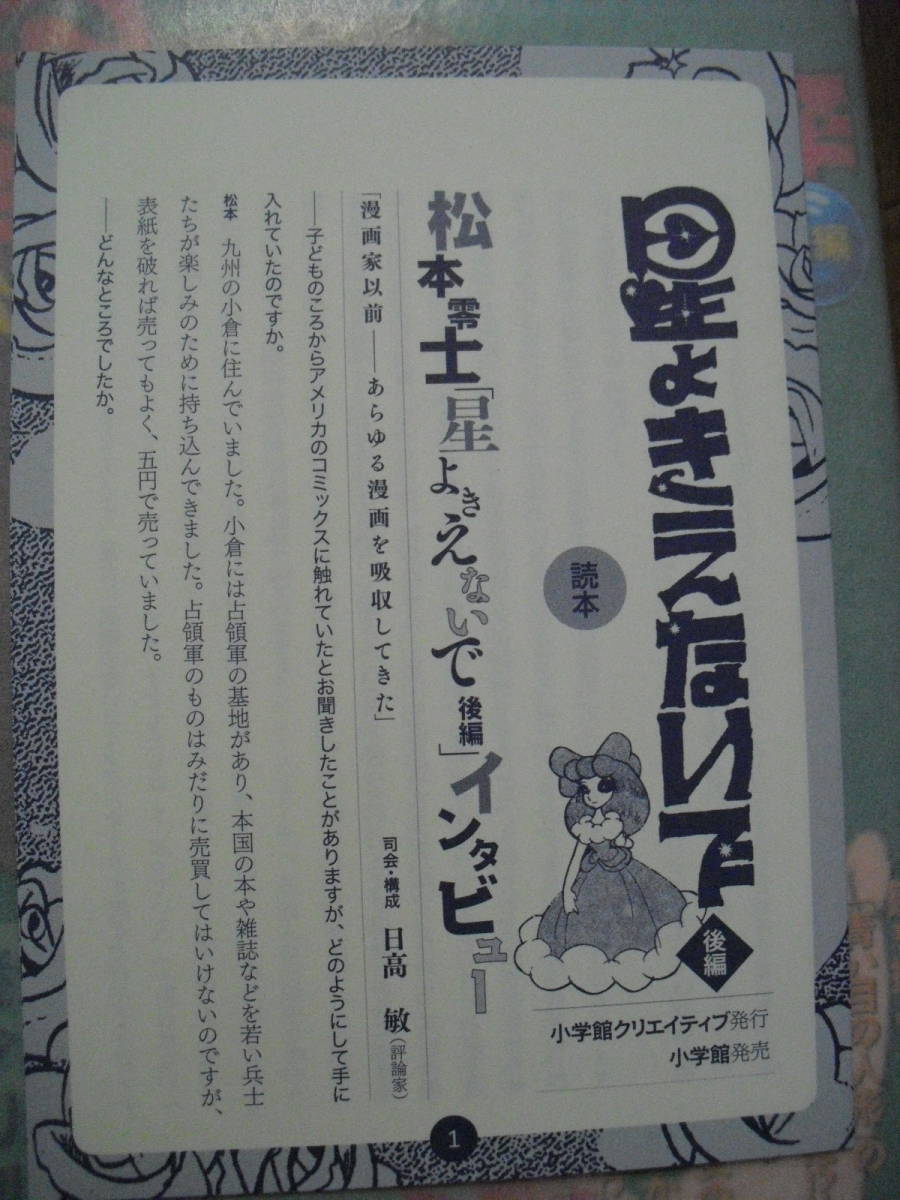 星よきえないで
後編
読本
小学館クリエイティブ発行
小学館発売
松本零士「星よきえないで後編」インタビュー
「漫画家以前――あらゆる漫画を吸収してきた」
司会・構成 日高 敏(評論家)
――子どものころからアメリカのコミックスに触れていたとお聞きしたことがありますが、どのようにして手に
入れていたのですか。
松本 九州の小倉に住んでいました。小倉には占領軍の基地があり、本国の本や雑誌などを若い兵士
たちが楽しみのために持ち込んできました。占領軍のものはみだりに売買してはいけないのですが、
表紙を破れば売ってもよく、五円で売っていました。
――どんなところでしたか。
1